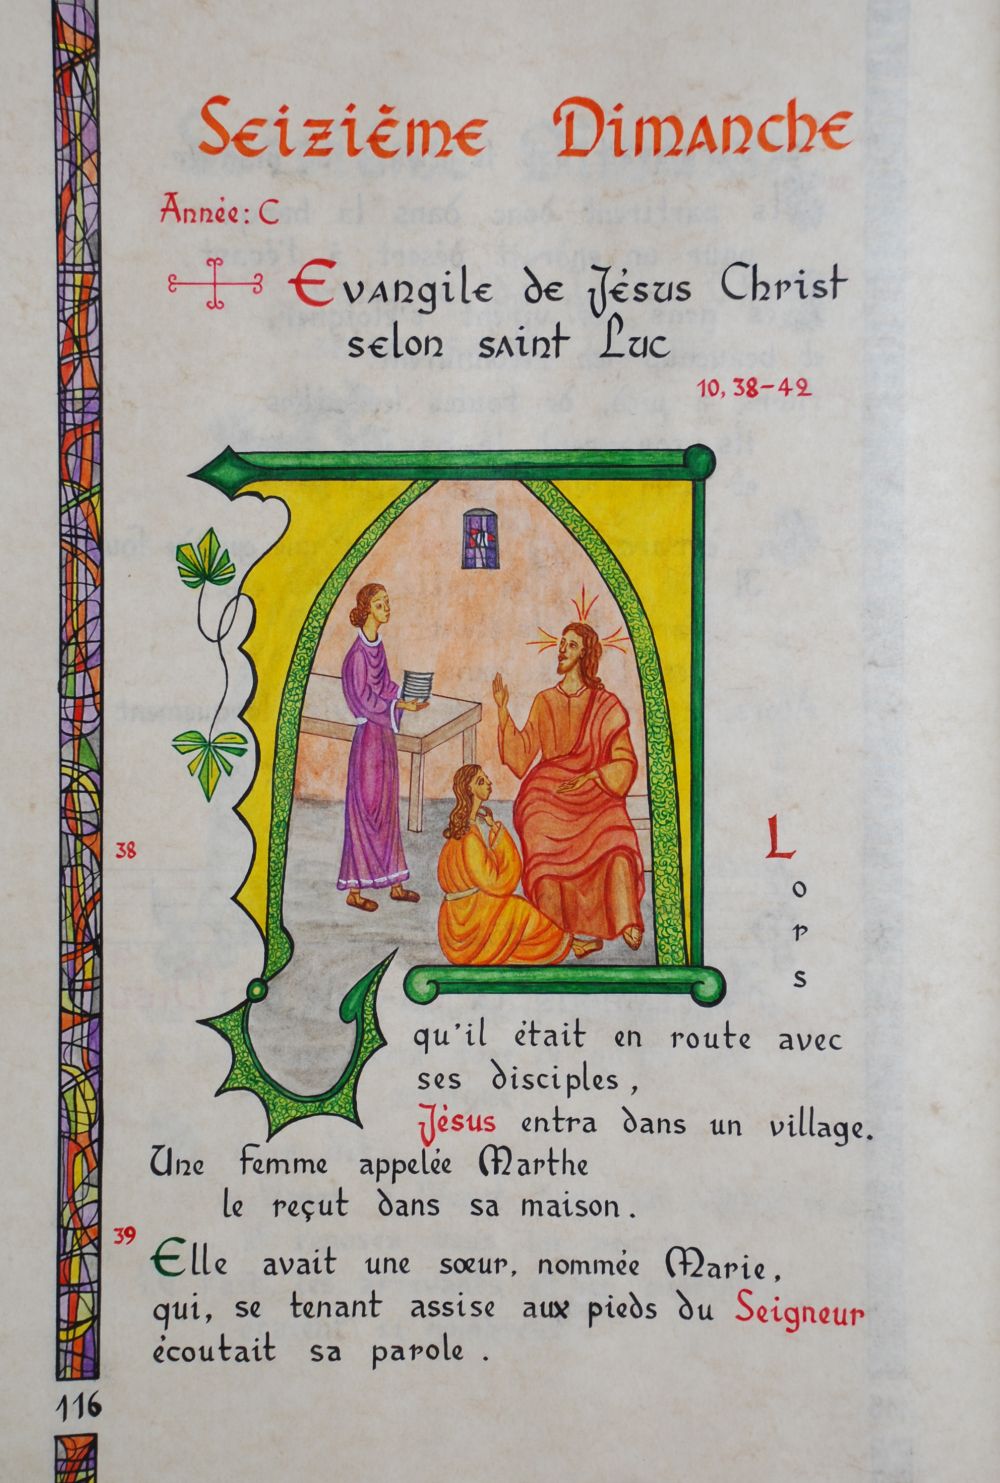 Seizième Dimanche
Année: C
Evangile de Jésus Christ
selon saint Luc
10, 38-42
38
Lors
qu'il était en route avec
ses disciples,
Jésus entra dans un village.
Une femme appelée Marthe
le reçut dans sa maison.
39
Elle avait une sœur, nommée Marie,
qui, se tenant assise aux pieds du Seigneur
écoutait sa parole.
116